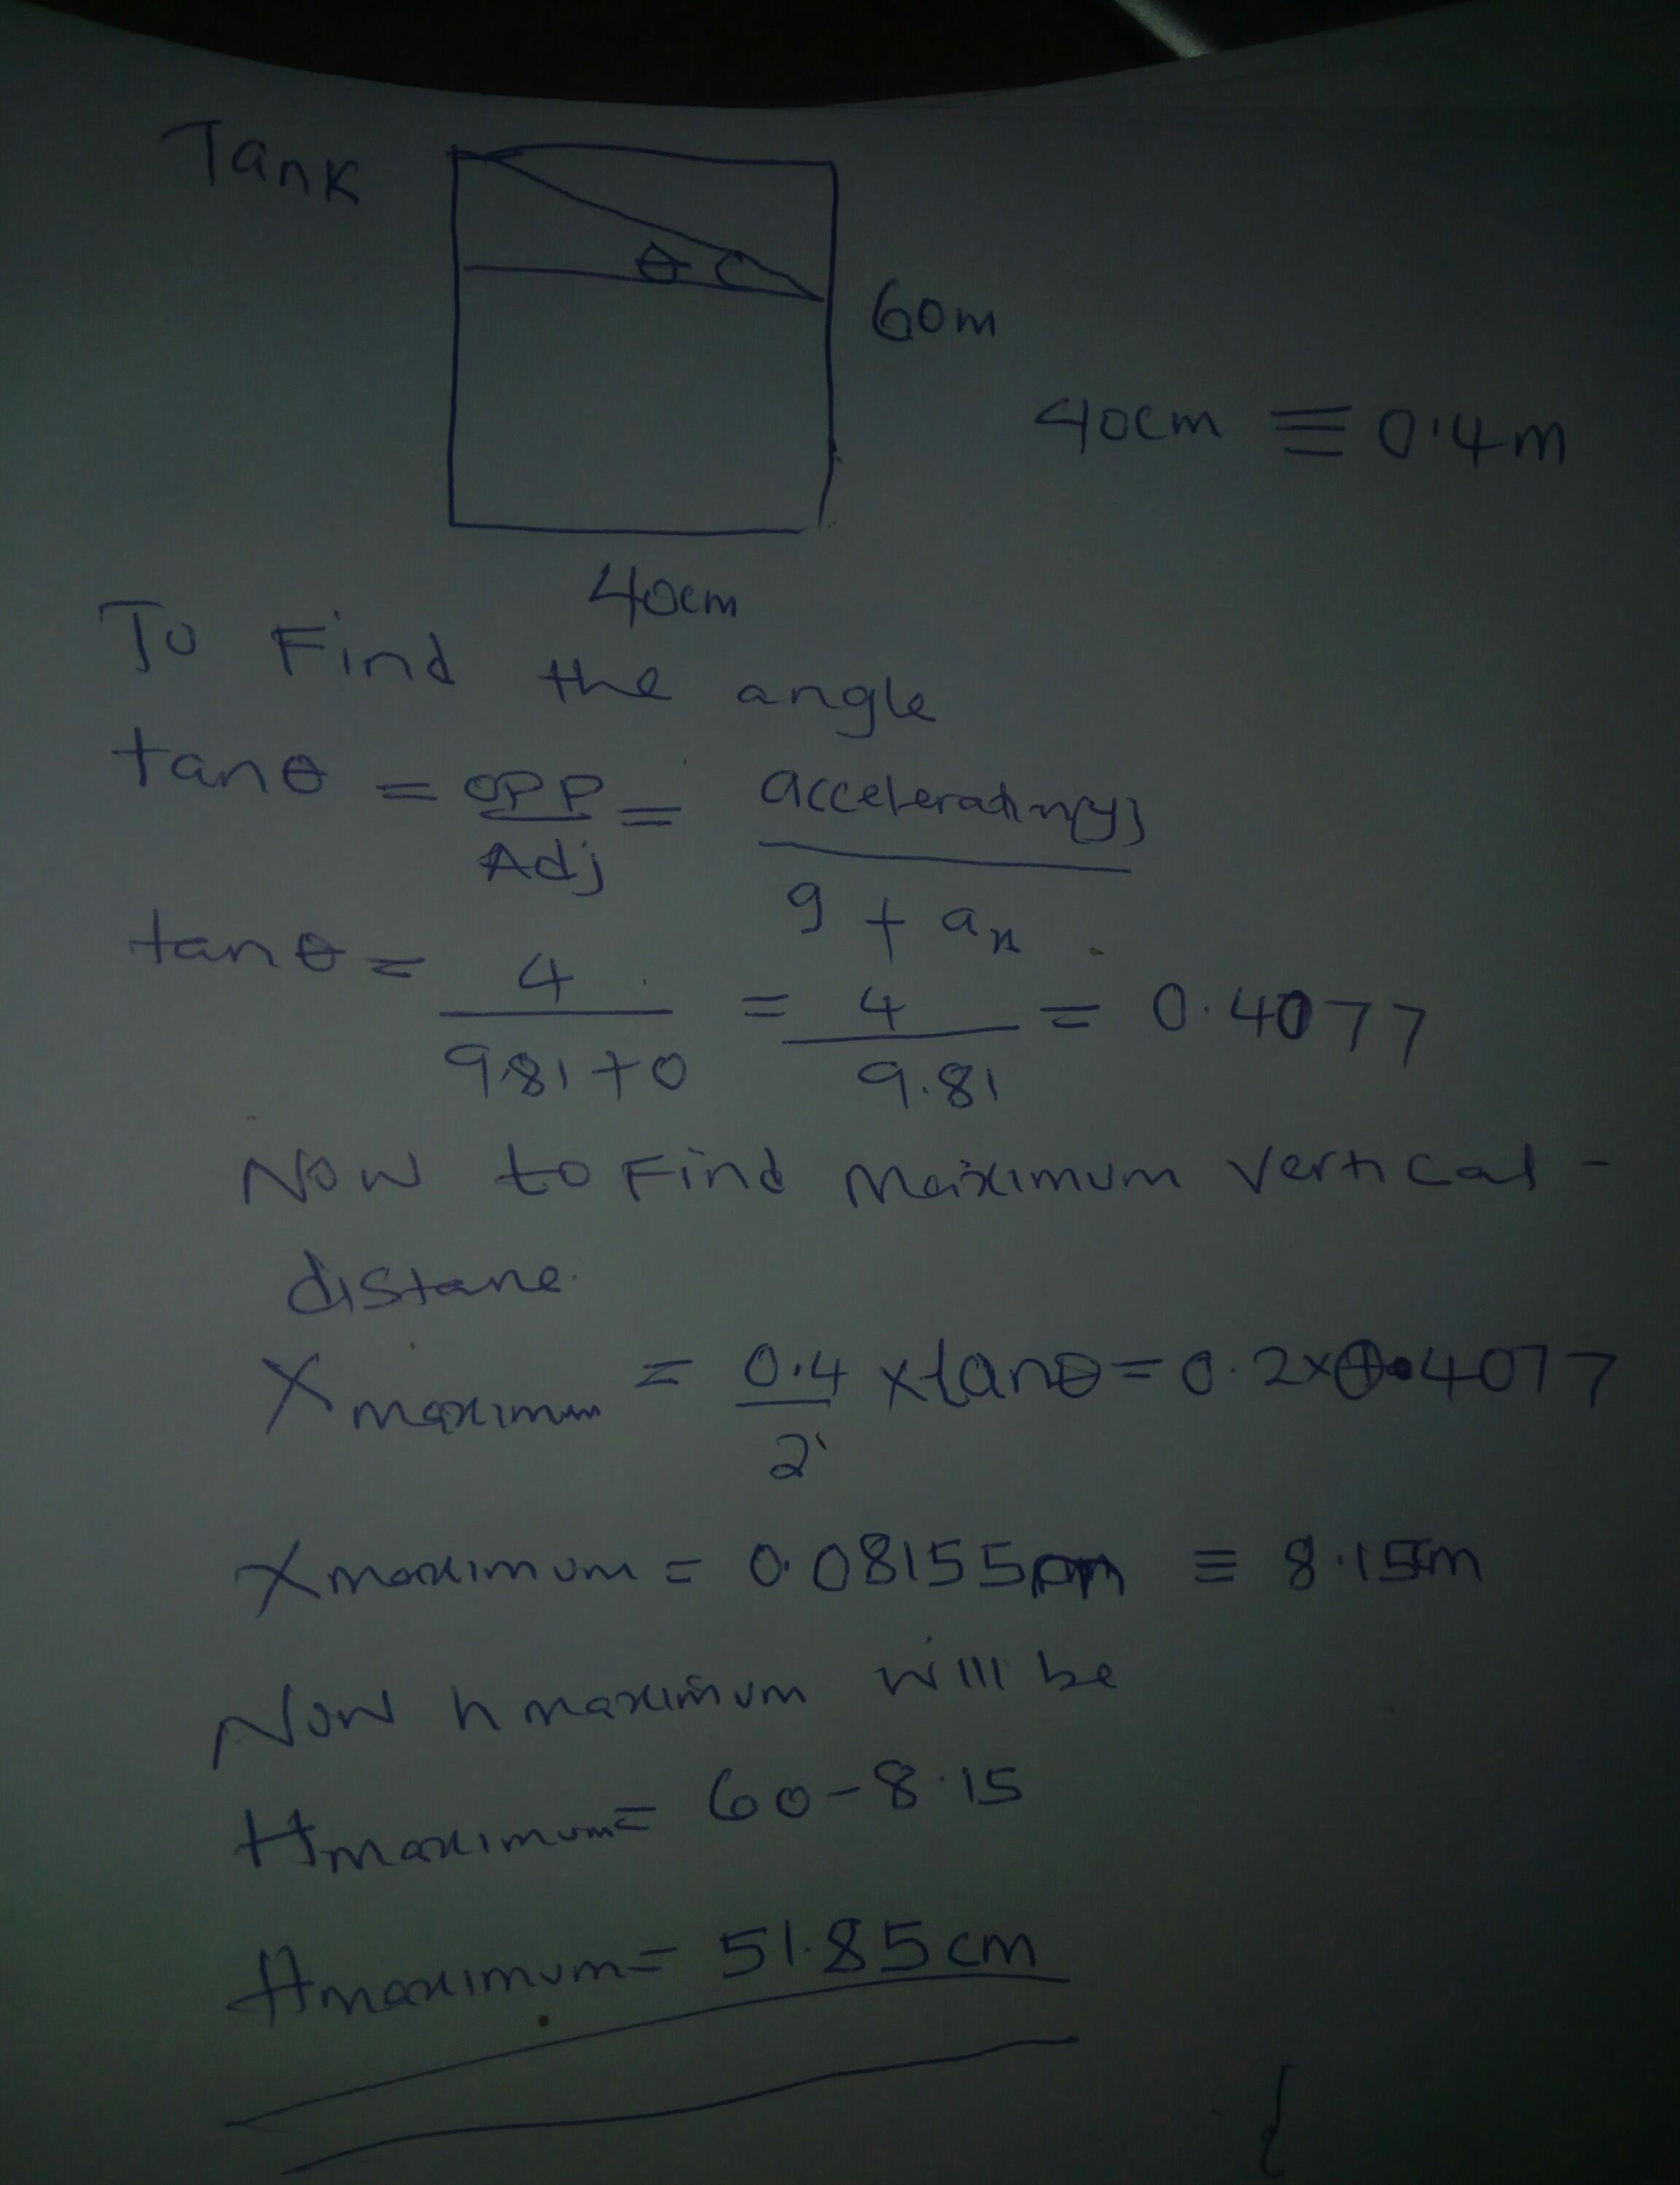 Tank
θ
60m
40cm ≡ 0.4m
40cm
To Find the angle
tanθ = OPP/Adj = acceleration(y)/g + ax
tanθ = 4/9.81+0 = 4/9.81 = 0.4077
Now to Find Maximum Vertical -
distane.
Xmaximum = 0.4/2 x tanθ = 0.2x0.4077
Xmaximum = 0.08155m ≡ 8.15cm
Now h maximum will be
Hmaximum = 60-8.15
Hmaximum = 51.85cm